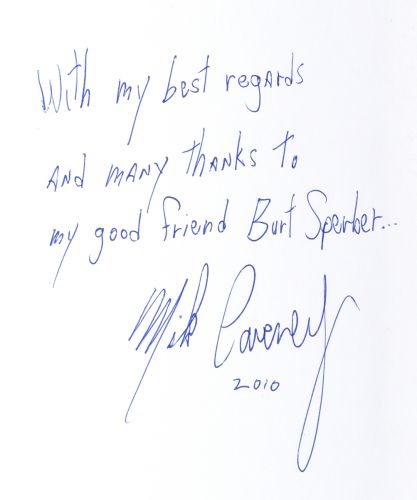 With my best regards
And many thanks to
my good friend Burt Sperber...
Mike Caveney
2010